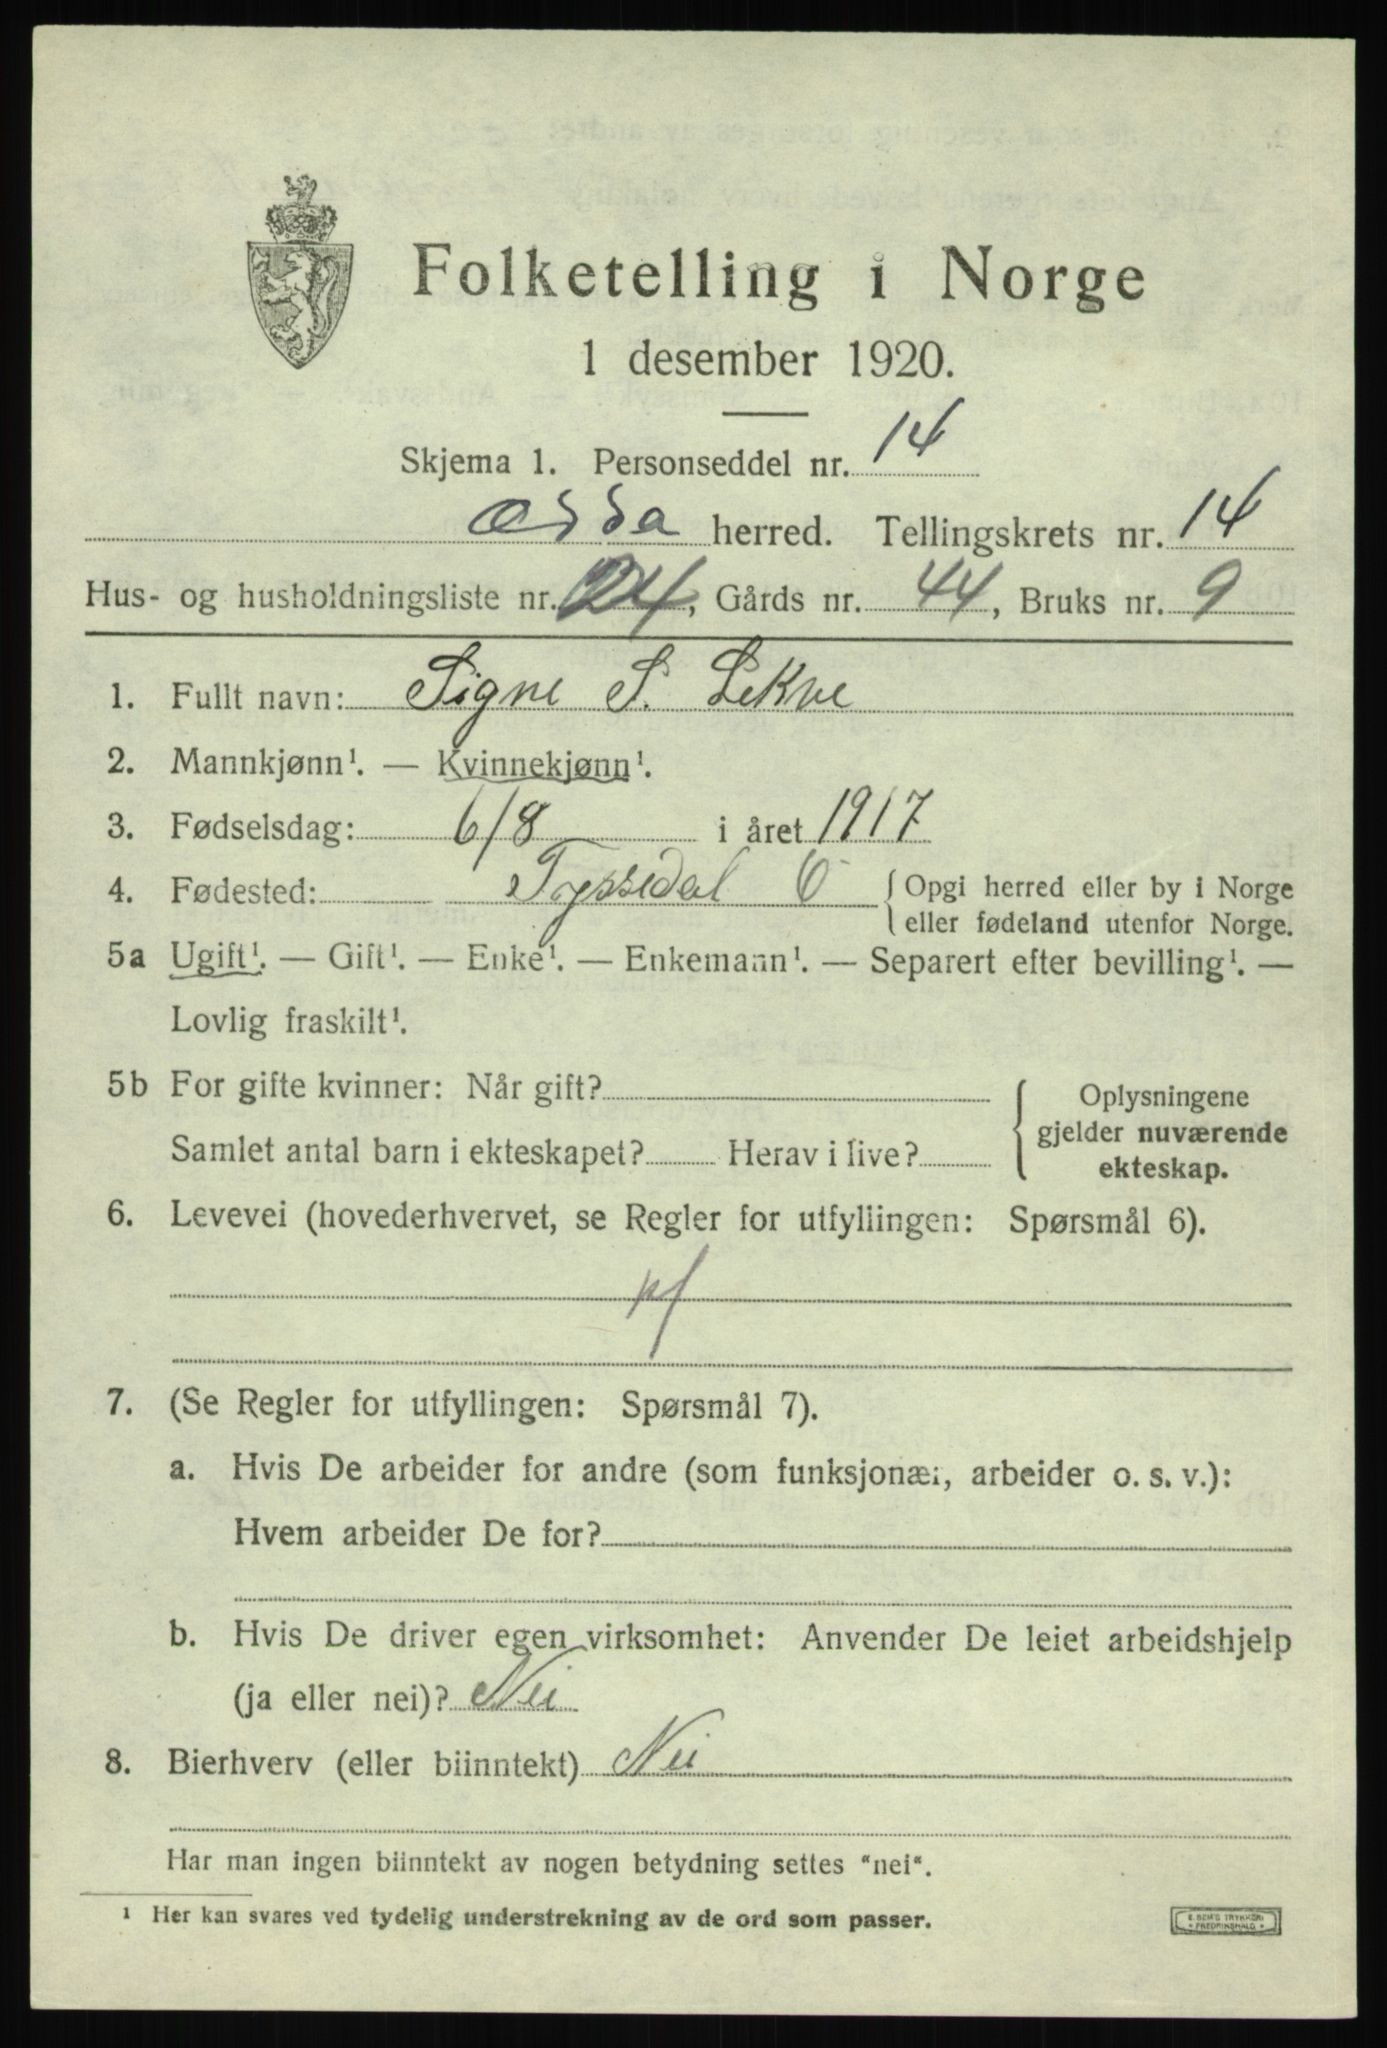 Folketelling i Norge
1 desember 1920.
Skjema 1. Personseddel nr. 14
Odda herred. Tellingskrets nr. 14
Hus- og husholdningsliste nr. 24, Gårds nr. 44, Bruks nr. 9
1. Fullt navn: Signe S. Lekve
2. Mannkjønn¹. — Kvinnekjønn¹.
3. Fødselsdag: 6/8 i året 1917
4. Fødested: Tyssedal { Opgi herred eller by i Norge
eller fødeland utenfor Norge.
5a Ugift¹. — Gift¹. — Enke¹. — Enkemann¹. — Separert efter bevilling¹. —
Lovlig fraskilt¹.
5b For gifte kvinner: Når gift?
Samlet antal barn i ekteskapet? Herav i live?
{ Oplysningene
gjelder nuværende
ekteskap.
6. Levevei (hovederhvervet, se Regler for utfyllingen: Spørsmål 6).
7. (Se Regler for utfyllingen: Spørsmål 7).
a. Hvis De arbeider for andre (som funksjonær, arbeider o. s. v.):
Hvem arbeider De for?
b. Hvis De driver egen virksomhet: Anvender De leiet arbeidshjelp
(ja eller nei)? Nei
8. Bierhverv (eller biinntekt) Nei
Har man ingen biinntekt av nogen betydning settes "nei".
¹ Her kan svares ved tydelig understrekning av de ord som passer.
E. SEM'S TRYKKERI
FREDRIKSHALD